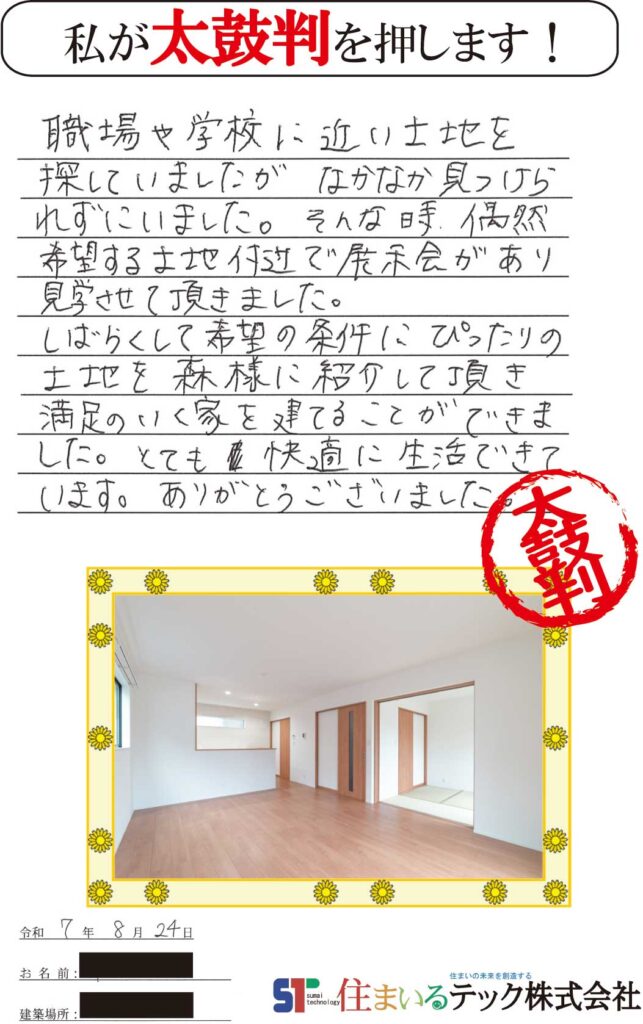 私が太鼓判を押します！
職場や学校に近い土地を
探していましたが なかなか見つけら
れずにいました。そんな時、偶然
希望する土地付近で展示会があり
見学させて頂きました。
しばらくして希望の条件に ぴったりの
土地を 森様に紹介して頂き
満足のいく家を建てることができま
した。とても 快適に生活できて
います。ありがとうございました。
太鼓判
令和 7 年 8 月 24日
お名前：
建築場所：
ST sumai technology
住まいの未来を創造する
住まいるテック株式会社